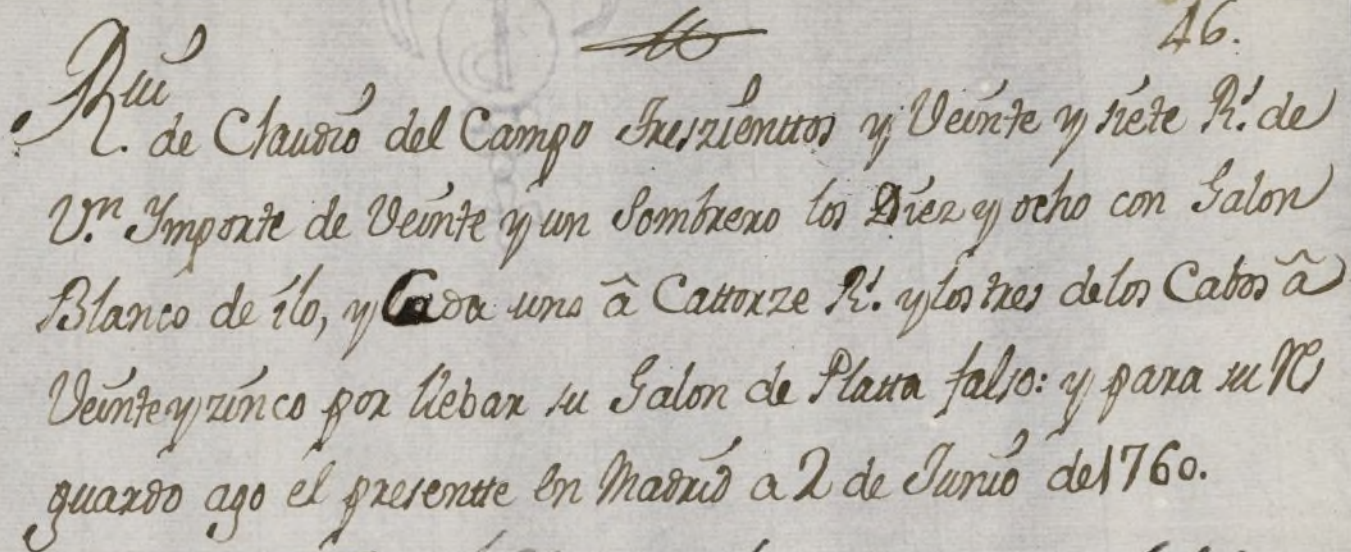 46.
Rẽui
de Claudio del Campo Treszienttos y Veinte y siete R.ˢ de
V.ⁿ Ymporte de Veinte y un Sombrero los Diez y ocho con Galon
Blanco de ilo, y Cada uno â Cattorze R.ˢ y los tres de los Cabos â
Veinte y zinco por llebar su Galon de Platta falso: y para su Re
guardo ago el presentte en Madrid a 2 de Junio de 1760.